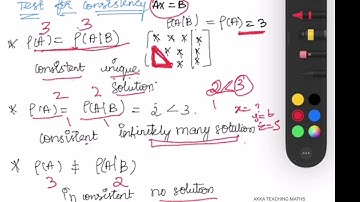 Test for consistency Ax=B
ρ(A|B) = ρ(A) = 3
3 3
* ρ(A) = ρ(A|B)
consistent unique solution.
2 2
* ρ(A) = ρ(A|B) = 2 < 3. 2 < 3
1 1
consistent infinitely many solution
* ρ(A) ≠ ρ(A|B)
3 2
In consistent no solution
AKKA TEACHING MATHS